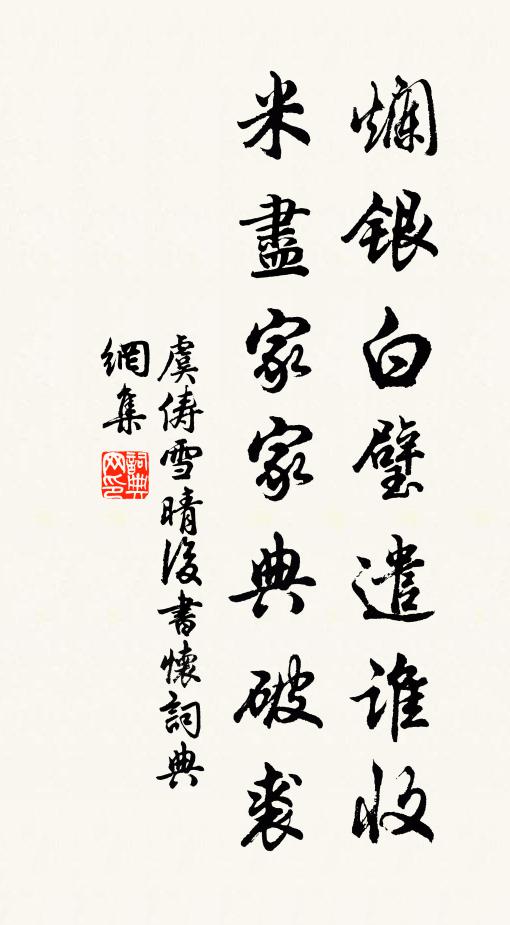 爛銀白璧遣誰收
米盡家家典破裘
虞儔雪晴後書懷詞典
網集
詞典網印